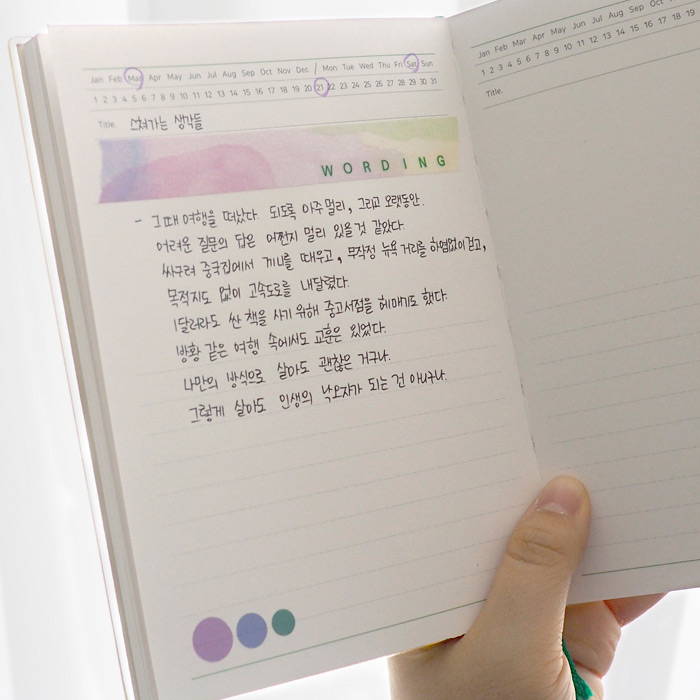 Jan Feb Mar Apr May Jun Jul Aug Sep Oct Nov Dec / Mon Tue Wed Thu Fri Sat Sun
1 2 3 4 5 6 7 8 9 10 11 12 13 14 15 16 17 18 19 20 21 22 23 24 25 26 27 28 29 30 31
Title. 스쳐가는 생각들
WORDING
- 그때 여행을 떠났다. 되도록 아주 멀리, 그리고 오랫동안.
어려운 질문의 답은 어쩐지 멀리 있을 것 같았다.
싸구려 중국집에서 끼니를 때우고, 무작정 뉴욕 거리를 하염없이 걷고,
목적지도 없이 고속도로를 내달렸다.
1달러라도 싼 책을 사기 위해 중고서점을 헤매기도 했다.
방황 같은 여행 속에서도 교훈은 있었다.
나만의 방식으로 살아도 괜찮은 거구나.
그렇게 살아도 인생의 낙오자가 되는 건 아니구나.
Jan Feb Mar Apr May Jun Jul Aug Sep Oct Nov
1 2 3 4 5 6 7 8 9 10 11 12 13 14 15 16 17 18 19
Title.